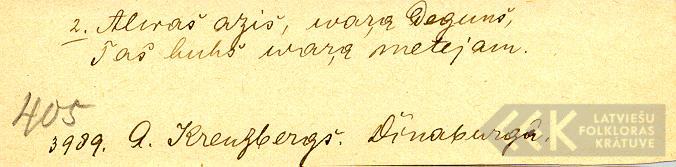 2. Alwaš aziš, waŗą Deguns,
Taš buhs waŗą metejam.
405
3989. A. Kreuzbergs. Dinaburgâ.
LATVIEŠU
FOLKLORAS
KRĀTUVE